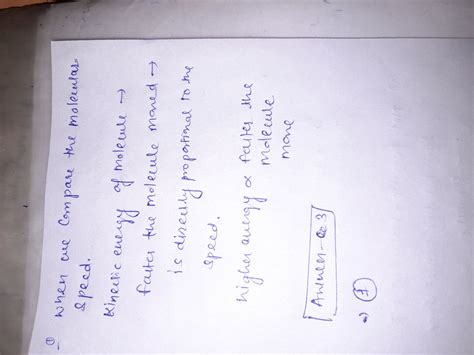 ① When we Compare the molecular
speed.
Kinetic energy of molecule →
faster the molecule moved →
is directly proportional to the
speed.
higher energy ∝ faster the
molecule
move
Answer-Q.3
a) ①